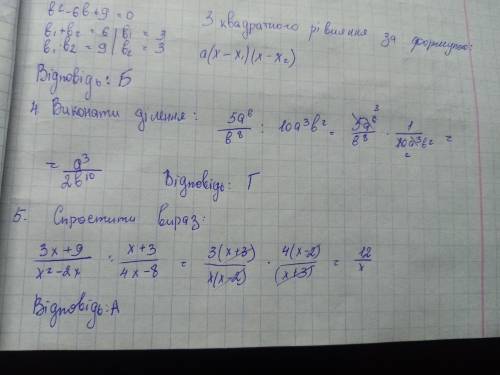 в² - 6в + 9 = 0
в₁ + в₂ = 6 | в₁ = 3
в₁ · в₂ = 9 | в₂ = 3
З квадратного рівняння за формулою:
a(x - x₁)(x - x₂)
Відповідь: Б
4 Виконати ділення: 5a⁶/в⁸ : 10a³в² = 5a⁶/в⁸ · 1/10a³в² =
= a³/2в¹⁰ Відповідь: Г
5. Спростити вираз:
3x+9/x²-2x : x+3/4x-8 = 3(x+3)/x(x-2) · 4(x-2)/(x+3) = 12/x
Відповідь: А